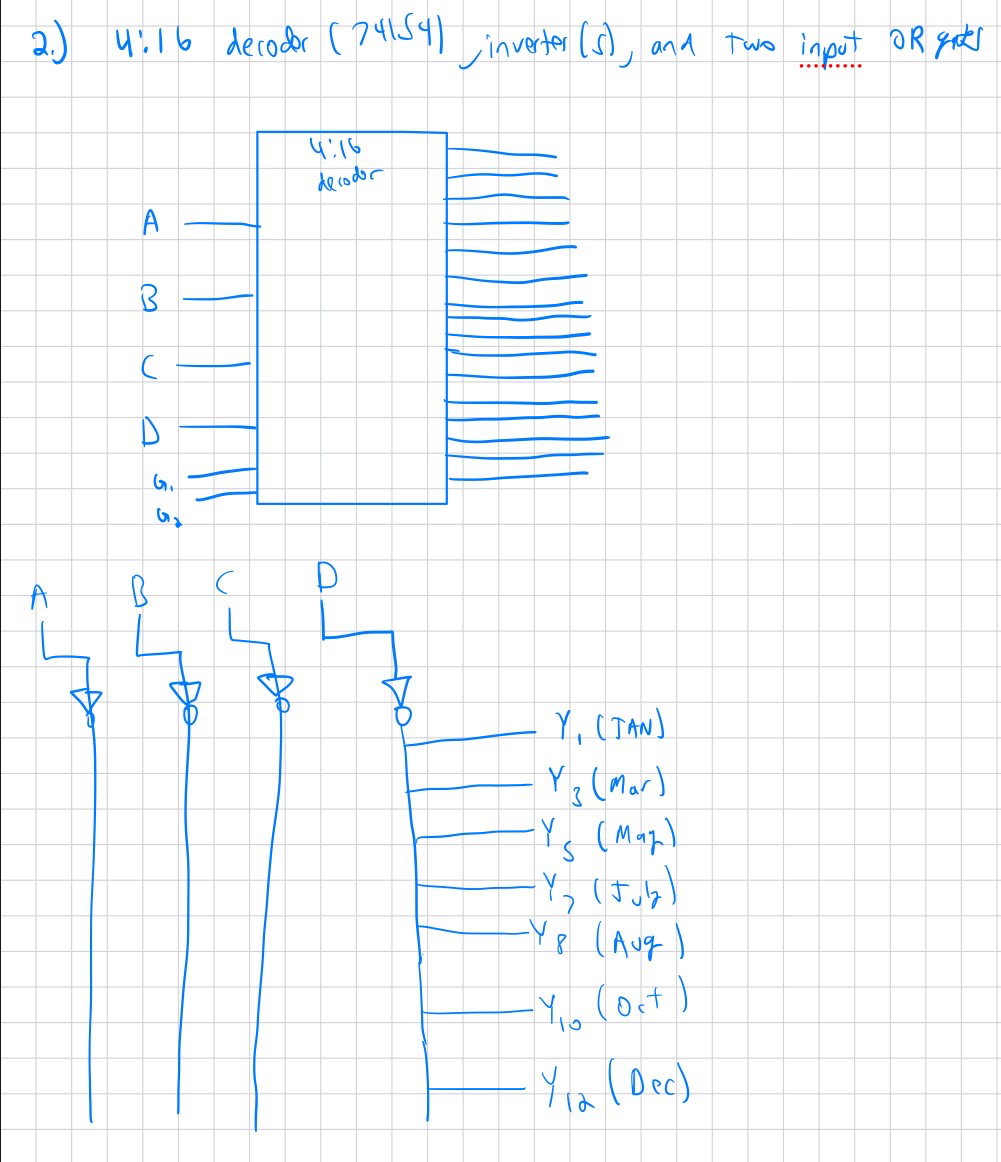 2.) 4:16 decodor (74154), inverter(s), and two input OR gates
4:16
decodor
A
B
C
D
G1
G2
A B C D
Y1 (JAN)
Y3 (Mar)
Y5 (May)
Y7 (July)
Y8 (Aug)
Y10 (Oct)
Y12 (Dec)